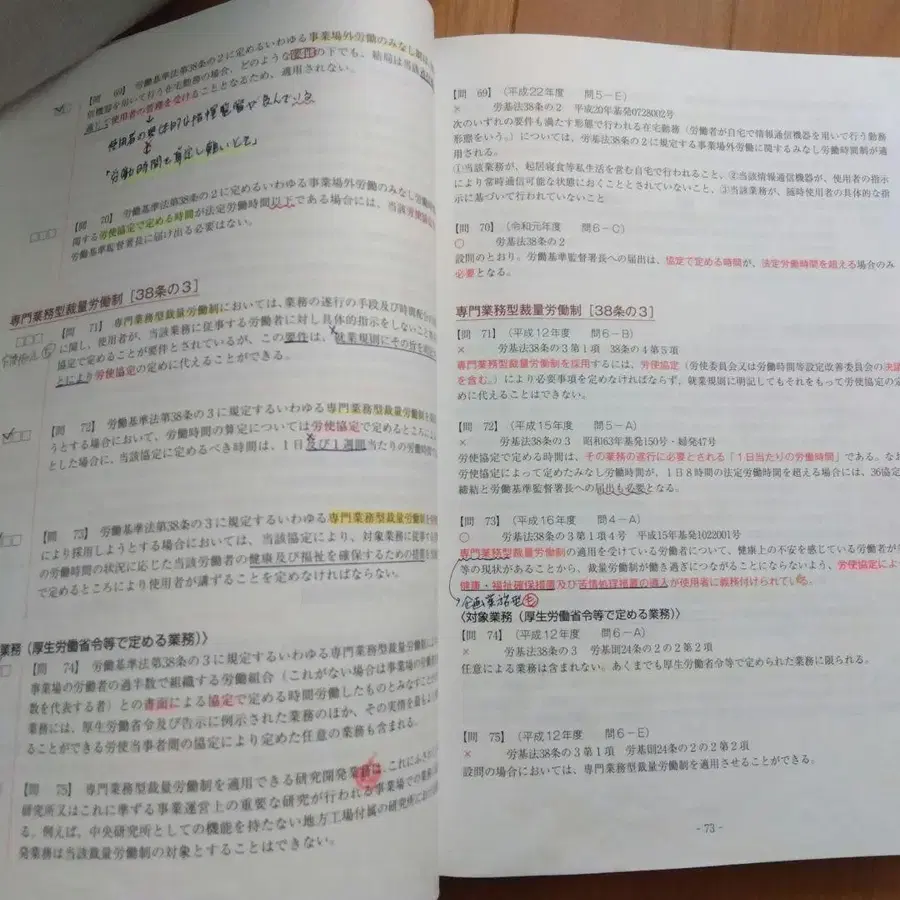 【問 69】 労働基準法第38条の2に定めるいわゆる事業場外労働のみなし
信機器を用いて行う在宅勤務の場合、どのような の下でも、結局は当該
通して使用者の管理を受けることとなるため、適用されない。
使用者の具体的な指揮監督が及んで
「労働時間を算定し難いとき」
【問 70】 労働基準法第38条の2に定めるいわゆる事業場外労働のみなし労働時間
関する労使協定で定める時間が法定労働時間以下である場合には、当該労使協定
労働基準監督署長に届け出る必要はない。
専門業務型裁量労働制 [38条の3]
【問 71】 専門業務型裁量労働制においては、業務の遂行の手段及び時間配分
に関し、使用者が、当該業務に従事する労働者に対し具体的指示をしないこと
協定で定めることが要件とされているが、この要件は、就業規則にその旨を
とにより労使協定の定めに代えることができる。
【問 72】 労働基準法第38条の3に規定するいわゆる専門業務型裁量労働制を
うとする場合において、労働時間の算定については労使協定で定めるところによ
とした場合に、当該協定に定めるべき時間は、1日及び1週間当たりの労働時間
【問 73】 労働基準法第38条の3に規定するいわゆる専門業務型裁量労働制を
により採用しようとする場合においては、当該協定により、対象業務に従事する
の労働時間の状況に応じた当該労働者の健康及び福祉を確保するための措置を
で定めるところにより使用者が講ずることを定めなければならない。
業務（厚生労働省令等で定める業務）〉
【問 74】 労働基準法第38条の3に規定するいわゆる専門業務型裁量労働制
事業場の労働者の過半数で組織する労働組合（これがない場合は事業場の労働者
数を代表する者）との書面による協定で定める時間労働したものとみなすこと
業務には、厚生労働省令及び告示に例示された業務のほか、その実情を最も
ることができる労使当事者間の協定により定めた任意の業務も含まれる。
【問 75】 専門業務型裁量労働制を適用できる研究開発業務は、これにふさ
研究所又はこれに準ずる事業運営上の重要な研究が行われる事業場での業務
る。例えば、中央研究所としての機能を持たない地方工場付属の研究所にお
発業務は当該裁量労働制の対象とすることはできない。
【問 69】（平成22年度 問5－E）
× 労基法38条の2 平成20年基発0728002号
次のいずれの要件も満たす形態で行われる在宅勤務（労働者が自宅で情報通信機器を用いて行う勤務
形態をいう。）については、労基法38条の2に規定する事業場外労働に関するみなし労働時間制が適
用される。
①当該業務が、起居寝食等私生活を営む自宅で行われること、②当該情報通信機器が、使用者の指示
により常時通信可能な状態におくこととされていないこと、③当該業務が、随時使用者の具体的な指
示に基づいて行われていないこと
【問 70】（令和元年度 問6－C）
○ 労基法38条の2
設問のとおり。労働基準監督署長への届出は、協定で定める時間が、法定労働時間を超える場合のみ
必要となる。
専門業務型裁量労働制 [38条の3]
【問 71】（平成12年度 問6－B）
× 労基法38条の3第1項 38条の4第5項
専門業務型裁量労働制を採用するには、労使協定（労使委員会又は労働時間等設定改善委員会の決議
を含む。）により必要事項を定めなければならず、就業規則に明記してもそれをもって労使協定の定
めに代えることはできない。
【問 72】（平成15年度 問5－A）
× 労基法38条の3 昭和63年基発150号・婦発47号
労使協定で定める時間は、その業務の遂行に必要とされる「1日当たりの労働時間」である。なお
労使協定によって定めたみなし労働時間が、1日8時間の法定労働時間を超える場合には、36協定
締結と労働基準監督署長への届出も必要となる。
【問 73】（平成16年度 問4－A）
○ 労基法38条の3第1項4号 平成15年基発1022001号
専門業務型裁量労働制の適用を受けている労働者について、健康上の不安を感じている労働者が
等の現状があることから、裁量労働制が働き過ぎにつながることにならないよう、労使協定によ
健康・福祉確保措置及び苦情処理措置の導入が使用者に義務付けられている。
企画業務型も
〈対象業務（厚生労働省令等で定める業務）〉
【問 74】（平成12年度 問6－A）
× 労基法38条の3 労基則24条の2の2第2項
任意による業務は含まれない。あくまでも厚生労働省令等で定められた業務に限られる。
【問 75】（平成12年度 問6－E）
× 労基法38条の3第1項 労基則24条の2の2第2項
設問の場合においては、専門業務型裁量労働制を適用させることができる。
- 73 -